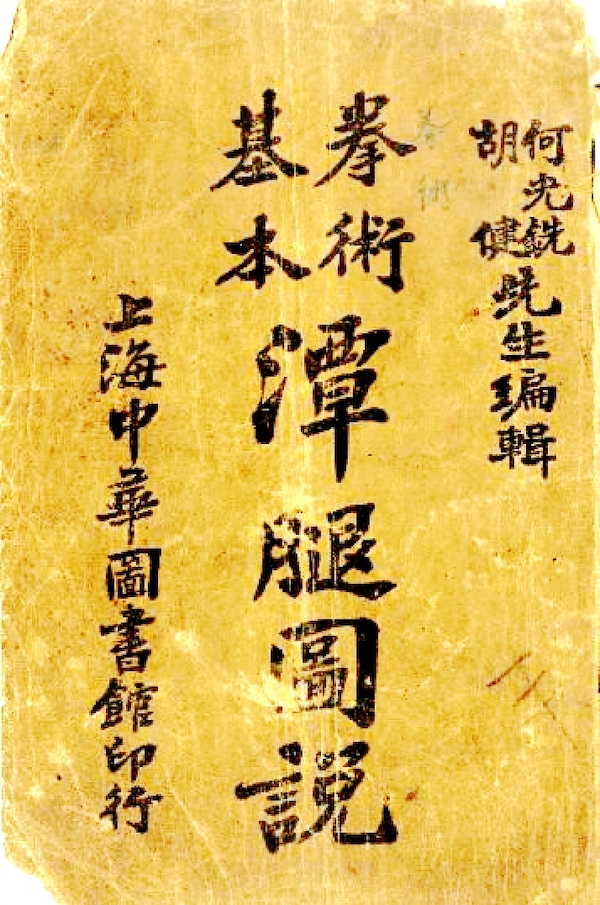 何光銑
胡健
先生編輯
拳術
基本
潭腿圖說
上海中華圖書館印行
拳術